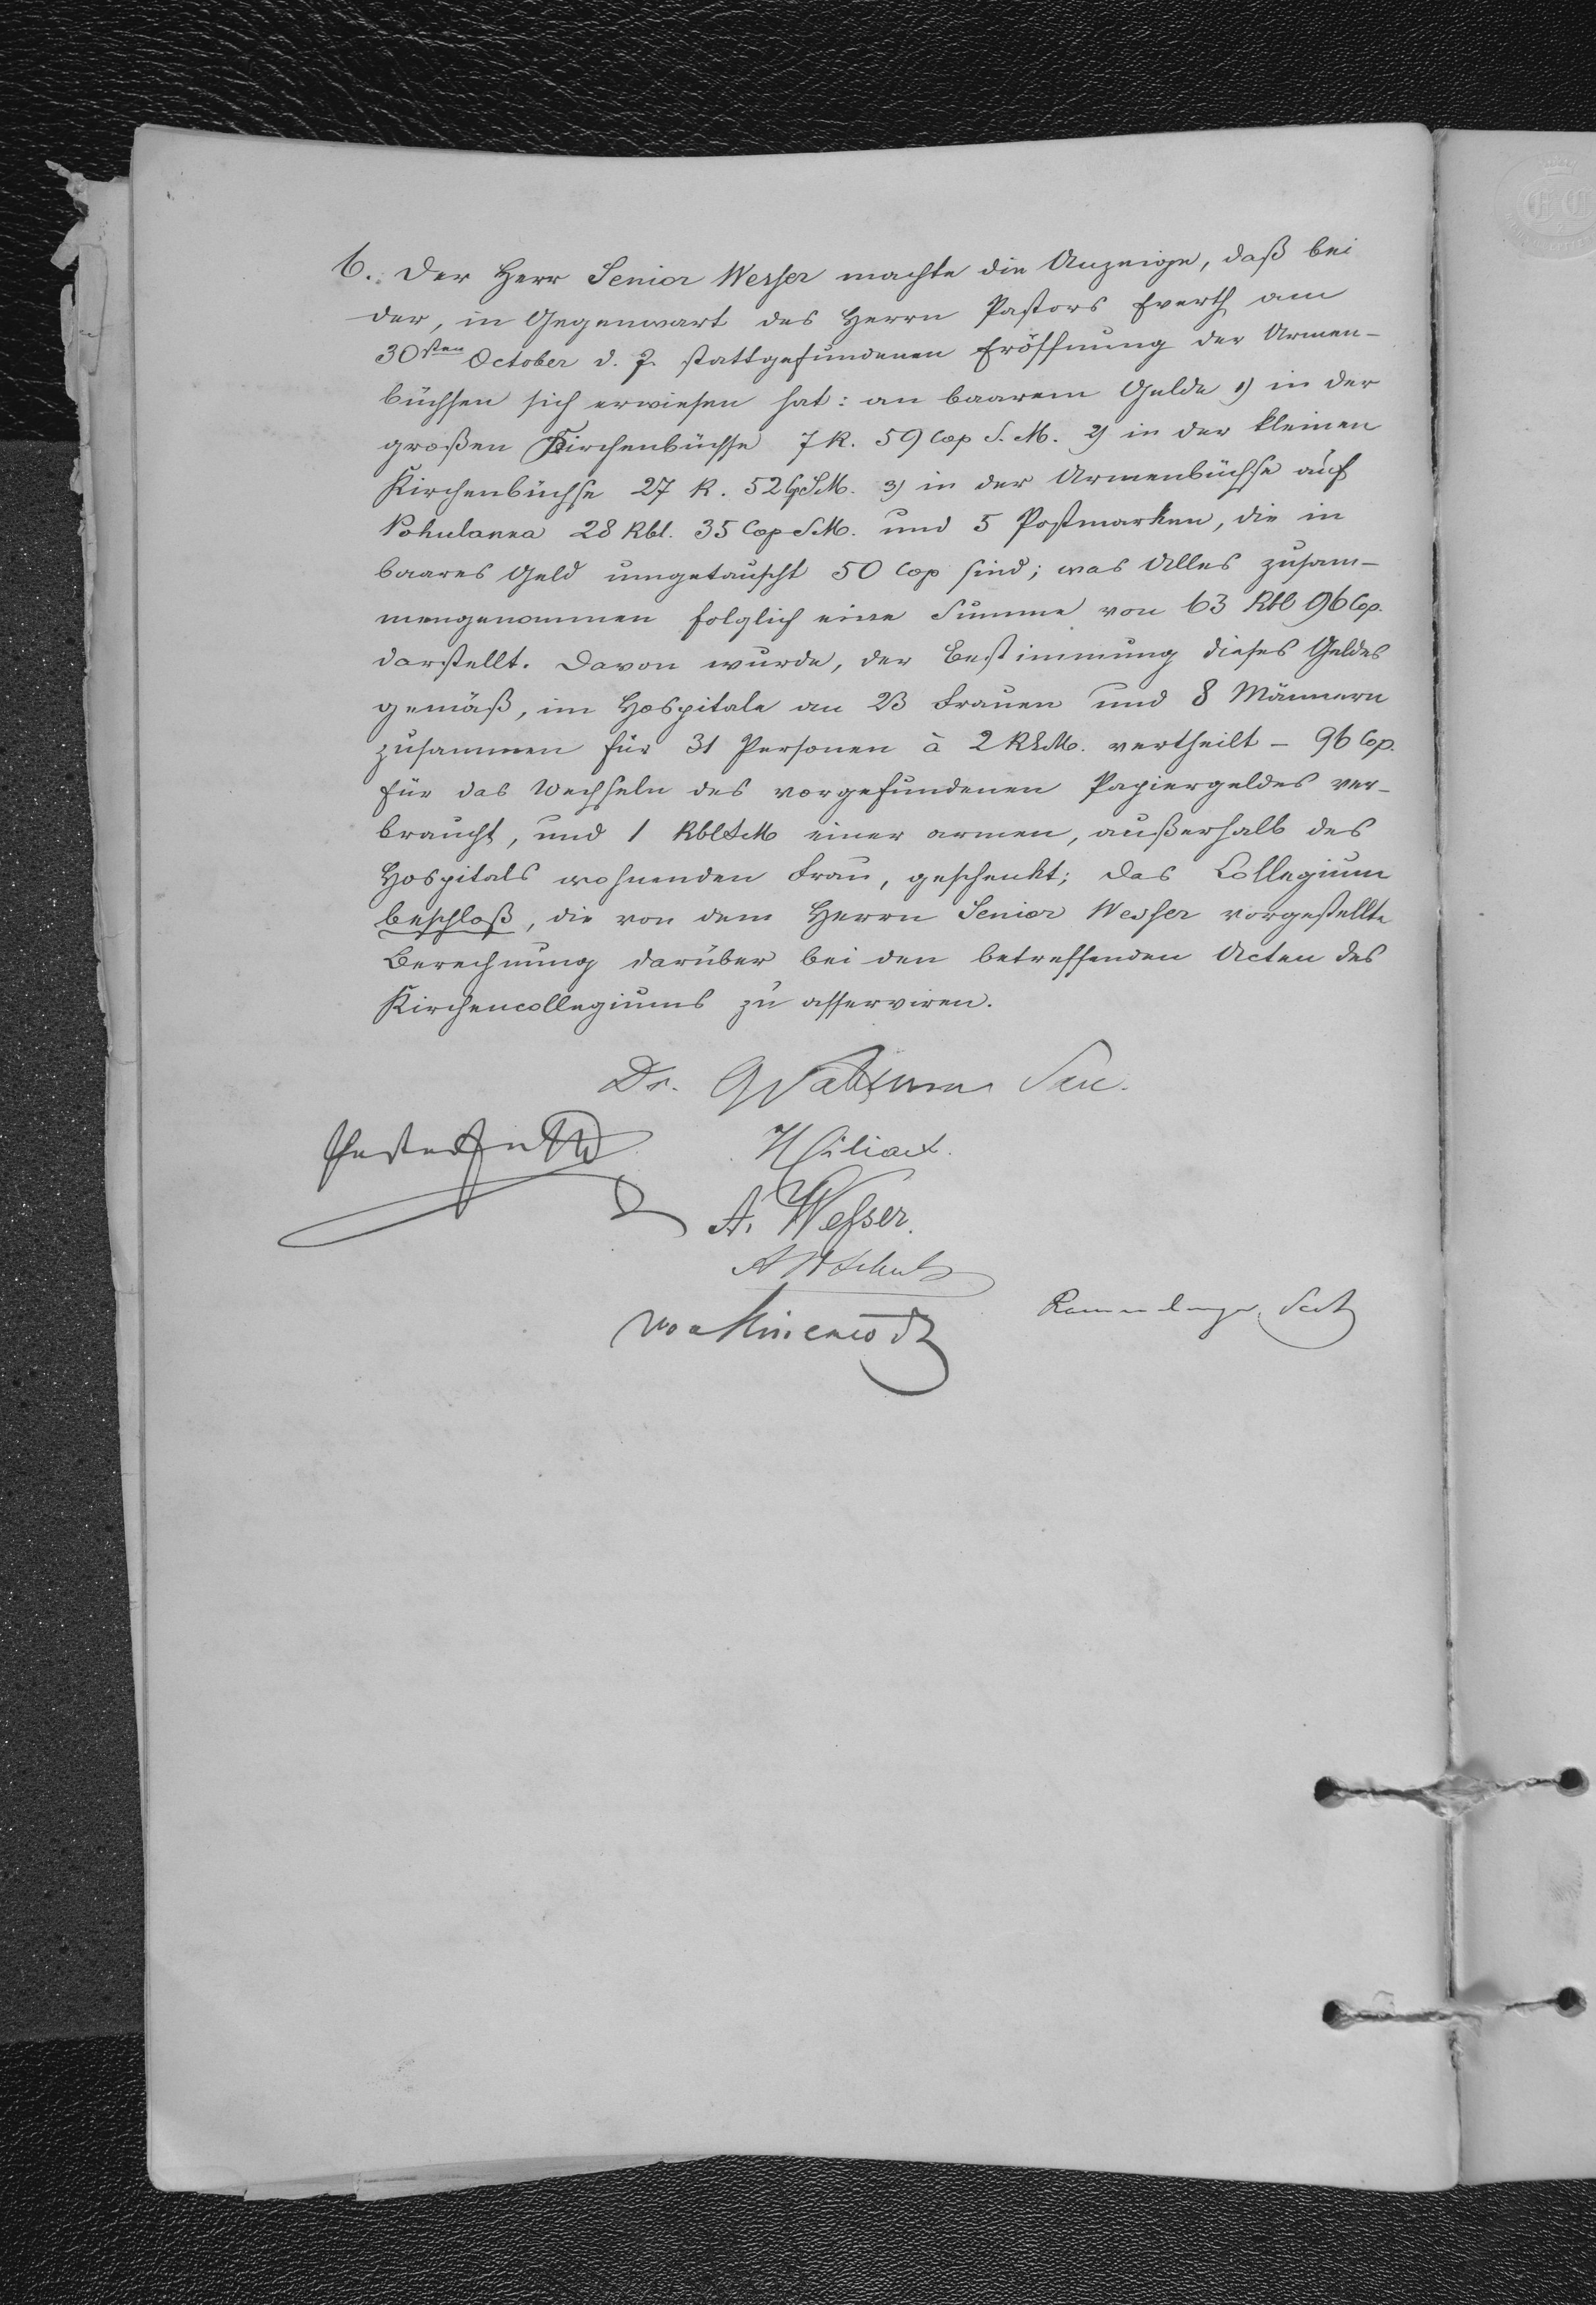 6. Der Herr Senior Wesser machte die Anzeige, daß bei
der, in Gegenwart des Herrn Pastors Everth am
30sten October d. J. stattgefundenen Eröffnung der Armen-
büchsen sich erwiesen hat: an baarem Gelde 1) in der
großen Kirchenbüchse 7 R. 59 Cop S. M. 2) in der kleinen
Kirchenbüchse 27 R. 52 Cp SM. 3) in der Armenbüchse auf
Pohulanka 28 Rbl. 35 Cop SM. und 5 Postmarken, die in
baares Geld umgetauscht 50 Cop sind; was Alles zusam-
mengenommen folglich eine Summe von 63 Rbl 96 Cop.
darstellt. Davon wurde, der Bestimmung dieses Geldes
gemäß, im Hospitale an 23 Frauen und 8 Männern
zusammen für 31 Personen à 2 R S.M. vertheilt – 96 Cop.
für das Wechseln des vorgefundenen Papiergeldes ver-
braucht, und 1 Rbl SM einer armen, außerhalb des
Hospitals wohnenden Frau, geschenkt; das Collegium
beschloß, die von dem Herrn Senior Wesser vorgestellte
Berechnung darüber bei den betreffenden Acten des
Kirchencollegiums zu asserviren.
Dr.
Pastor
A. Wesser.